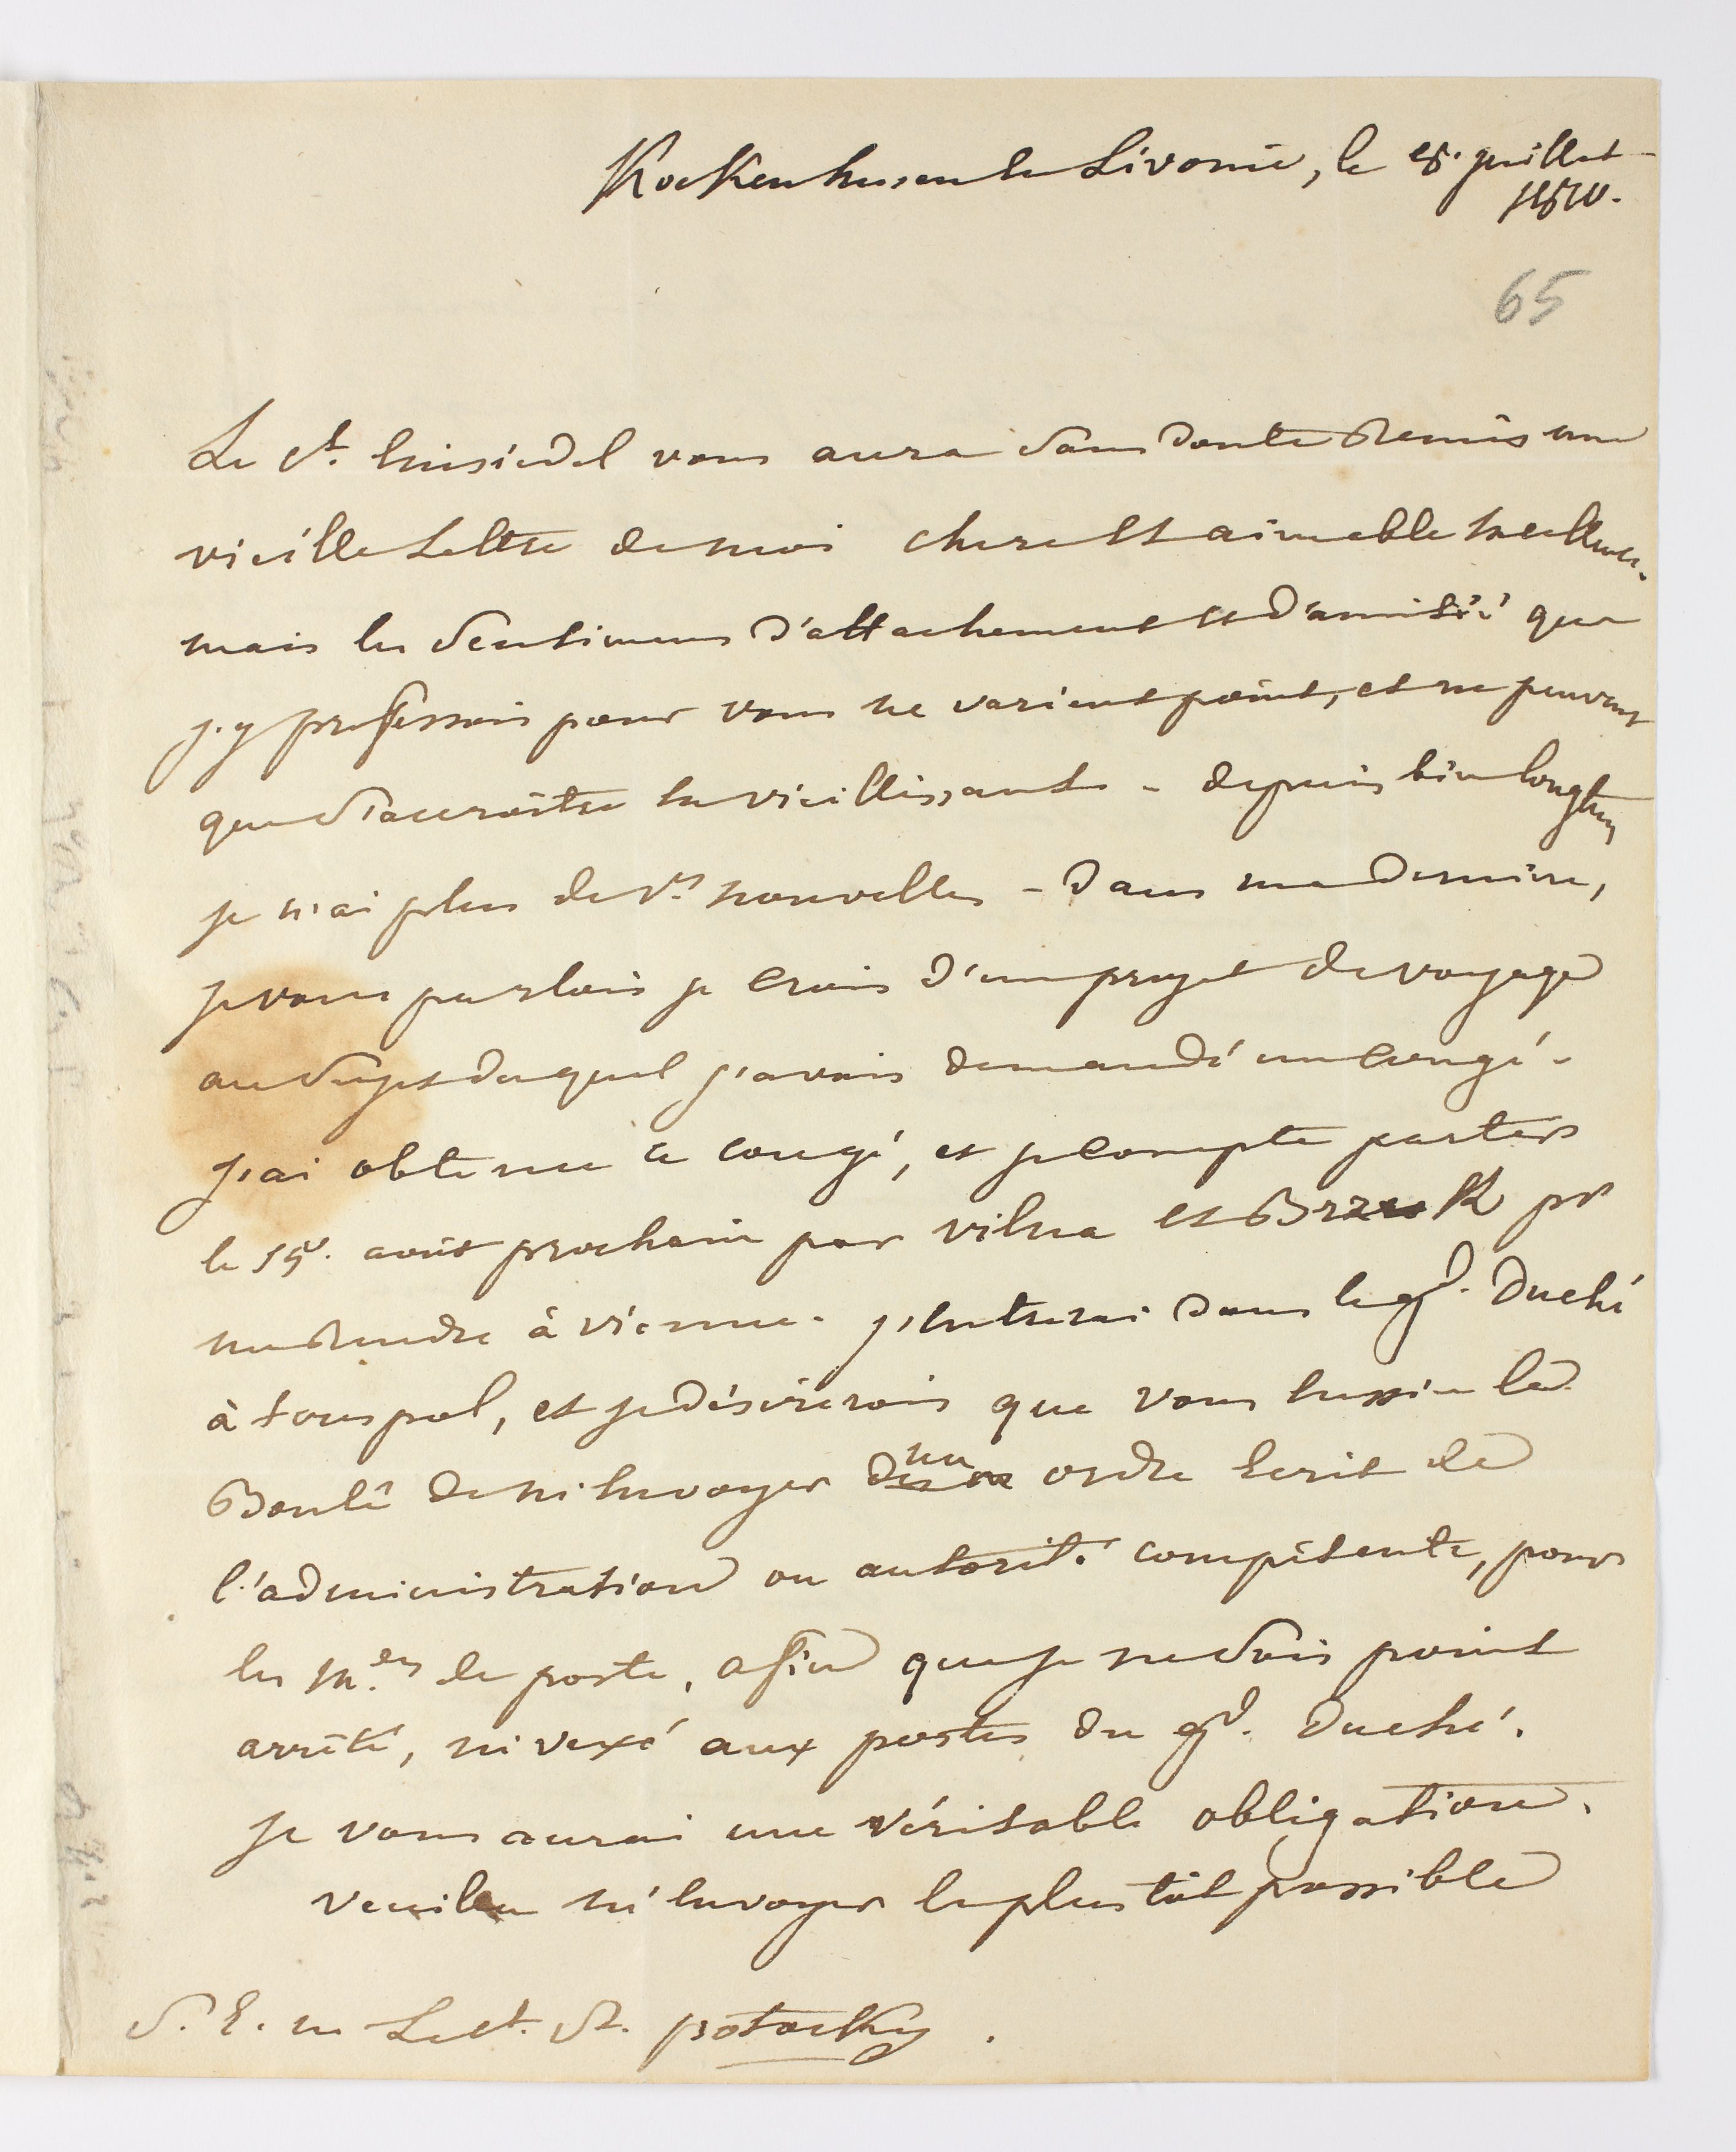 Kockenhusen en Livonie, le 18. juillet
1810.
65
Le Ct. Einsiedel vous aura sans doute remis une
vieille Lettre de moi chere et aimable Excellence.
mais les sentimens d'attachement et d'amitié que
j'y professois pour vous ne varient point, et ne peuvent
que s'accroitre en vieillissant - depuis bien longtems
je n'ai plus de vs nouvelles - dans ma derniere,
je vous parlois je crois d'un projet de voyage
au sujet duquel j'avois demandé un congé -
j'ai obtenu ce congé, et je compte partir
le 15. août prochain par vilna et pr
me rendre à vienne. j'entrerai dans le gd. Duché
à , et je désirerois que vous eussiez la
Bonté de m'envoyer un ordre écrit de
l'administration ou autorité compétente, pour
les m.es de poste, afin que je ne sois point
arrêté, ni vexé aux postes du gd. Duché.
je vous aurai une véritable obligation.
veuillez m'envoyer le plus tôt possible
S. E. m Le Ct. St. potocky.